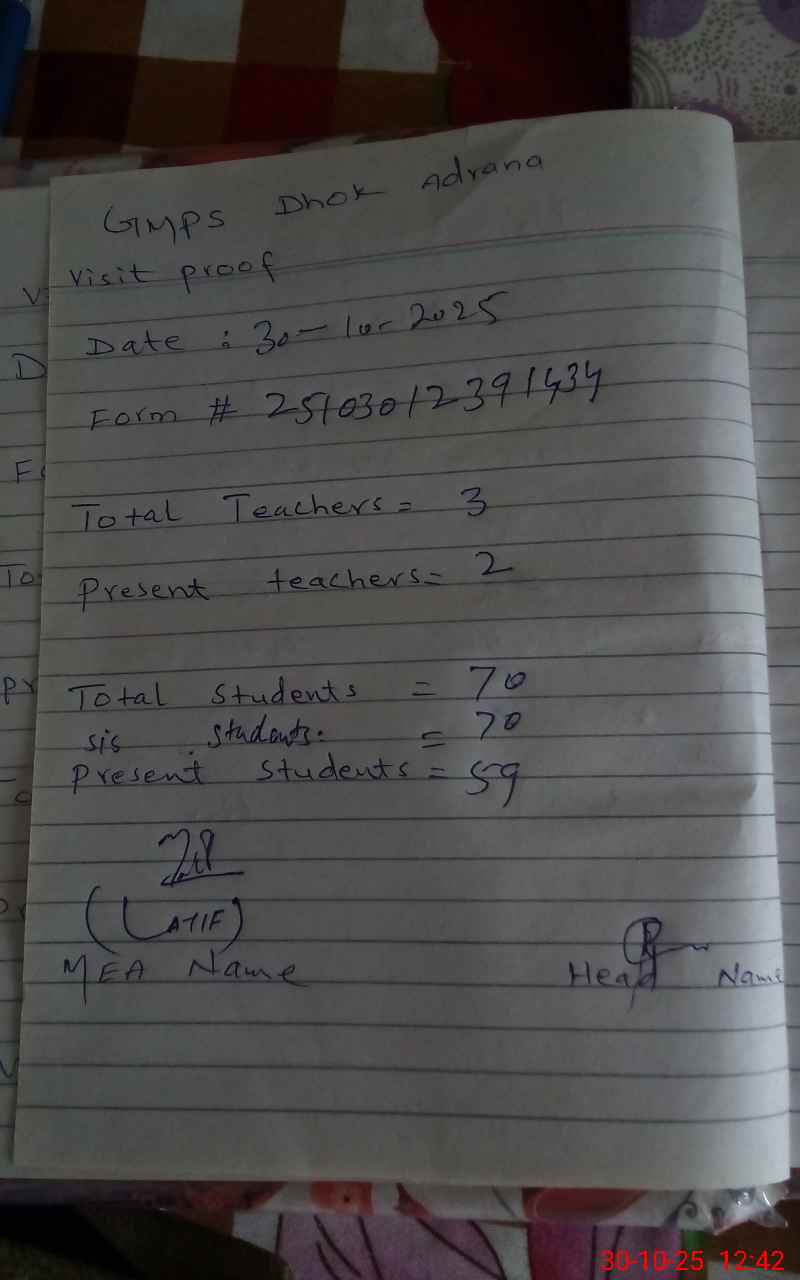 GMPS Dhok Adrana
Visit proof
Date : 30-10-2025
Form # 2510301239 1434
Total Teachers = 3
Present teachers = 2
Total Students = 70
sis students. = 70
Present Students = 59
(LATIF)
MEA Name
Head Name
30-10-25 12:42